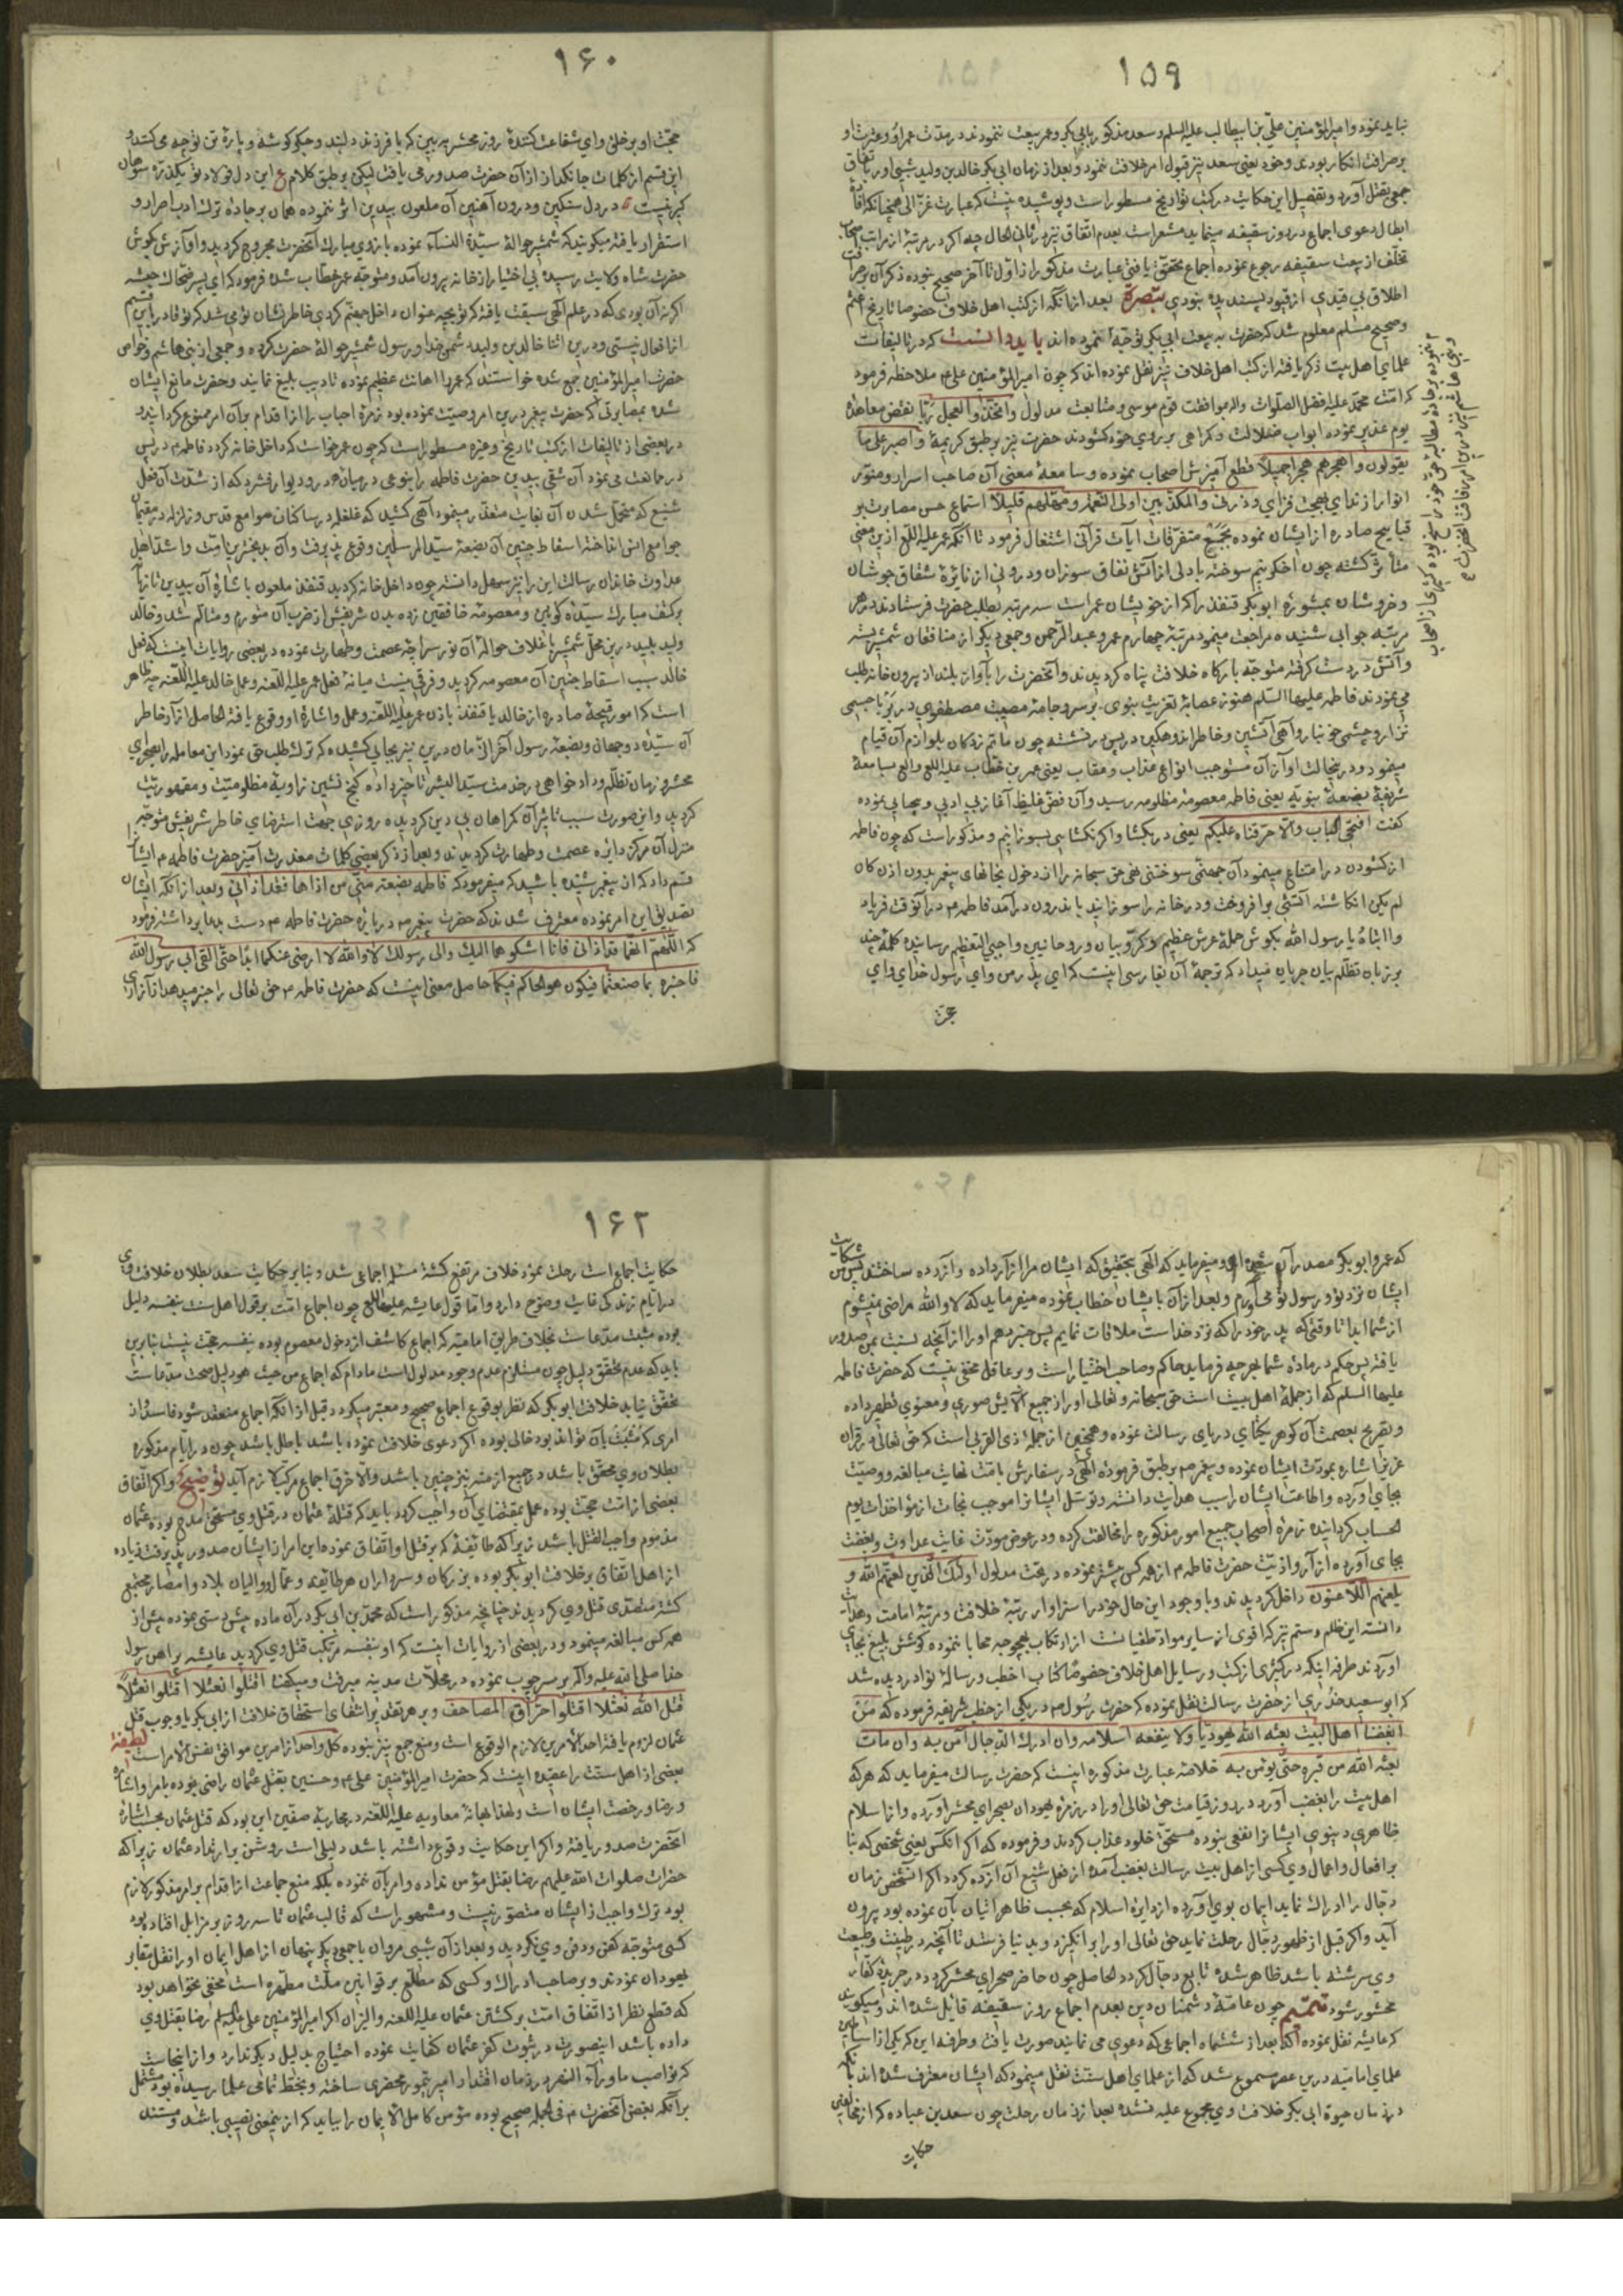 ۱۵۹
نباید نمود و امیر المؤمنین علی بن ابیطالب علیه السلم و سعد مذکور بابی بکر و عمر بیعت ننمودند در مدت عمر او و عترت او
بر صرافت انکار بودند و خود یعنی سعد نیز قبول امر خلافت ننمود و بعد از زمان ابی بکر خالد بن ولید بشبی او را باتفاق
جمعی بقتل آورد و تفصیل این حکایت در کتب تواریخ مسطور است و پوشیده نیست که عبارت غزالی همچنانکه افادهٔ
ابطال دعوی اجماع در روز سقیفه مینماید مشعر است بعدم اتفاق نیز در ثانی الحال چه اگر در مرتبهٔ از مراتب اصحاب
تخلف از بیعت سقیفه رجوع نموده اجماع تحقق یافتی عبارت مذکور را از اول تا آخر صحیح نبوده ذکر آن بر صرافت
اطلاق بی قیدی از قیود پسندیده نبودی تبصرة بعد از آنکه از کتب اهل خلاف خصوصا تاریخ اعثم
و صحیح مسلم معلوم شد که حضرت به بیعت ابی بکر توجه ننموده اند باید دانست که در تالیفات
علمای اهل بیت ذکر یافته از کتب اهل خلاف نیز نقل نموده اند که چون امیر المؤمنین علی ع ملاحظه فرمود
که امت محمد علیه افضل الصلوات و اله بموافقت قوم موسی و متابعت مدلول واتخذوا العجل ربا بنقض معاهدهٔ
یوم غدیر نموده ابواب ضلالت و گمراهی بر روی خود گشودند حضرت نیز بر طبق کریمهٔ واصبر علی ما
یقولون واهجرهم هجرا جمیلا قطع آمیزش اصحاب نموده و سامعهٔ معنی آن صاحب اسرار و منور
انوار از ندای بهجت فزای وذرنی والمکذبین اولی النعمة ومهلهم قلیلا استماع حسن مصابرت بر
قبایح صادره از ایشان نموده بجمع متفرقات آیات قرآنی اشتغال فرمود تا آنکه عمر علیه اللع ازین معنی
متاثر گشته چون اخگر نیم سوخته با دلی از آتش نفاق سوزان و درونی از نائرهٔ شقاق جوشان
و خروشان بمشورهٔ ابو بکر قنفذ را که از خویشان عمر است سه مرتبه بطلب حضرت فرستادند در هر
مرتبه جوابی شنیده مراجعت مینمود مرتبهٔ چهارم عمر و عبد الرحمن و جمعی دیگر از منافقان شمشیر بسته
و آتش در دست گرفته متوجه بارگاه خلافت پناه گردیدند و آنحضرت را بآواز بلند از بیرون خانه طلب
می نمودند فاطمه علیها السلم هنوز عصابهٔ تعزیت نبوی بر سر و جامهٔ مصیبت مصطفوی در بر با جسمی
نزار و چشمی خونبار و آهی آتشین و خاطر اندوهگین در پس در نشسته چون ماتم زدگان بلوازم آن قیام
مینمود و در ینحالت آواز آن مستوجب انواع عذاب و عقاب یعنی عمر بن خطاب علیه اللع والع بسامعهٔ
شریفهٔ بضعهٔ نبویه یعنی فاطمه معصومهٔ مظلومه رسید و آن فض غلیظ آغاز بی ادبی و بیحیایی نموده
گفت افتحی الباب والا حرقناه علیکم یعنی در بگشا و اگر نگشایی بسوزانیم و مذکور است که چون فاطمه
از گشودن در امتناع مینمود آن جهنمی سوختنی نهی حق سبحانه را از دخول بخانهای پیغمبر بدون اذن کان
لم یکن انگاشته آتشی بر افروخت و در خانه را سوزانیده باندرون در آمد فاطمه ع در آنوقت فریاد
وا ابتاهٔ یا رسول الله بگوش حملهٔ عرش عظیم و کروبیان و روحانیین واجبی التعظیم رسانیده کلمهٔ چند
بر زبان تظلم بیان جریان میداد که ترجمهٔ آن بفارسی اینست که ای پدر من وای رسول خدای وای
۱۶۰
حجت او بر خلق وای شفاعت کنندهٔ روز محشر ببین که با فرزند دلبند و جگر گوشه و پارهٔ تن تو چه می کنند و
این قسم از کلمات جانگداز از آن حضرت صدور می یافت لیکن بر طبق کلام ع این دل فولاد تو یکذره سوهان
گیر نیست در دل سنگین و درون آهنین آن ملعون بیدین اثر ننموده همان بر جادهٔ ترک ادب اصرار و
استقرار یافته میگویند که شمشیر حوالهٔ سیدة النساء نموده بازوی مبارک آنحضرت مجروح گردید و آوازش بگوش
حضرت شاه ولایت رسیده بی اختیار از خانه بیرون آمد و متوجه عمر خطاب شده فرمود که ای پسر ضحاک حبشیه
اگر نه آن بودی که در علم الهی سبقت یافته که تو بچه عنوان داخل جهنم گردی خاطر نشان تو می شد که تو قادر باین قسم
از افعال نیستی و درین اثنا خالد بن ولید شمشیر خدا و رسول شمشیر حوالهٔ حضرت کرده و جمعی از بنی هاشم و خواص
حضرت امیر المؤمنین جمع شده خواستند که عمر را اهانت عظیم نموده تادیب بلیغ نمایند و حضرت مانع ایشان
شده بمصابرتی که حضرت پیغمبر درین امر وصیت نموده بود زمرهٔ احباب را از اقدام بر آن امر ممنوع گردانید و
در بعضی از تالیفات از کتب تاریخ و غیره مسطور است که چون عمر خواست که داخل خانه گردد فاطمه ع در پس
در ممانعت می نمود آن شقی بیدین حضرت فاطمه را بنوعی در میانهٔ در و دیوار فشرد که از شدت آن فعل
شنیع که متحمل شدن آن بغایت متعذر مینمود آهی کشید که غلغله در ساکنان صوامع قدس و زلزله در مقیمان
جوامع انس انداخته اسقاط جنین آن بضعهٔ سید المرسلین وقوع پذیرفت و آن بدبخترین امت و اشد اهل
عداوت خاندان رسالت این را نیز سهل دانسته چون داخل خانه گردید قنفذ ملعون باشارهٔ آن بیدین تازیانهٔ
بر کتف مبارک سیدهٔ کونین و معصومهٔ خافقین زده بدن شریفش از ضرب آن متورم و متالم شد و خالد
ولید پلید درین محل شمشیر با غلاف حوالهٔ آن نور سراچهٔ عصمت و طهارت نموده در بعضی روایات اینست که فعل
خالد سبب اسقاط جنین آن معصومه گردید و فرقی نیست میانهٔ فعل عمر علیه اللعنه و عمل خالد علیه اللعنه چه ظاهر
است که امور قبیحهٔ صادره از خالد یا قنفذ باذن عمر علیه اللعنه و عمل و اشارهٔ او وقوع یافته الحاصل آزار خاطر
آن سیدهٔ دوجهان و بضعهٔ رسول آخر الزمان درین نیز بجایی کشیده که ترک طلب حق نمود این معامله را بحواری
محشر و زمان تظلم و داد خواهی در خدمت سید البشر تاخیر داده کنج نشین زاویهٔ مظلومیت و مقهوریت
گردید و این صورت سبب تاثر آن گمراهان بی دین گردیده روزی جهت استرضای خاطر شریفش متوجه
منزل آن مرکز دایرهٔ عصمت و طهارت گردیدند و بعد از ذکر بعضی کلمات معذرت آمیز حضرت فاطمه م ایشان را
قسم داد که از پیغمبر شنیده باشید که میفرمود که فاطمه بضعة منی من اذاها فقد اذانی و بعد از آنکه ایشان
تصدیق این امر نموده معترف شدند که حضرت پیغمبر ص در بارهٔ حضرت فاطمه ع دست بدعا برداشته فرمود
که اللهم انهما قد اذیانی فانا اشکوهما الیک والی رسولک لا والله لا ارضی عنکما ابدا حتی القی ابی رسول الله
فاخبره بما صنعتما فیکون هو الحاکم فیکما حاصل معنی اینست که حضرت فاطمه ع حق تعالی را خبر میدهد از آزاری
که عمر و ابو بکر مصدر آن شده اند و میفرماید که الهی بتحقیق که ایشان مرا آزار داده و آزرده ساختند پس من شکایت
ایشان نزد تو و رسول تو می آورم و بعد از آن بایشان خطاب نموده میفرماید که لا والله راضی نمیشوم
از شما ابدا تا وقتی که پدر خود را که نزد خداست ملاقات نمایم پس خبر دهم او را از آنچه نسبت بمن صدور
یافته پس حکم در مادهٔ شما بهر چه فرماید حاکم و صاحب اختیار است و بر عاقل مخفی نیست که حضرت فاطمه
علیها السلم که از جملهٔ اهل بیت است حق سبحانه و تعالی او را از جمیع آلایش صوری و معنوی تطهیر داده
و تصریح بعصمت آن گوهر یکتای دریای رسالت نموده و همچنین از جملهٔ ذی القربی است که حق تعالی در قرآن
عزیز اشاره بمودت ایشان نموده و پیغمبر ص بر طبق فرمودهٔ الهی در سفارش بامت نهایت مبالغه و وصیت
بجای آورده و اطاعت ایشان را سبب هدایت دانسته و توسل ایشانرا موجب نجات از مؤاخذات یوم
الحساب گردانیده زمرهٔ اصحاب جمیع امور مذکوره را مخالفت کرده و در عوض مودت غایت عداوت و بغضت
بجای آورده از آزار و اذیت حضرت فاطمه م از همه کس بیشتر نموده در تحت مدلول اولئک الذین لعنهم الله و
یلعنهم اللاعنون داخل گردیدند و با وجود این حال خود را سزاوار رتبهٔ خلافت و مرتبهٔ امامت و هدایت
دانسته این ظلم و ستم نیز که اقوی از سایر مواد طغیانست از ارتکاب بهیچوجه محابا ننموده کوشش بلیغ بجای
آوردند طرفه اینکه در اکثری از کتب و رسایل اهل خلاف خصوصا کتاب اخطب و رسالهٔ نوادر دیده شد
که ابو سعید خدری از حضرت رسالت نقل نموده که حضرت رسول ص در یکی از خطب شریفه فرموده که من
ابغضنا اهل البیت بعثه الله یهودیا ولا ینفعه اسلامه وان ادرک الدجال امن به وان مات
بعثه الله من قبره حتی یؤمن به خلاصهٔ عبارت مذکوره اینست که حضرت رسالت میفرماید که هر که
اهل بیت را بغضب آورد در روز قیامت حق تعالی او را در زمرهٔ یهودان بصحرای محشر آورده و از اسلام
ظاهری دنیوی ایشانرا نفعی نبوده مستحق خلود عذاب گردند و فرموده که اگر آنکس یعنی شخصی که بنا
بر افعال و اعمال وی کسی از اهل بیت رسالت بغضب آمده از فعل شنیع آن آزرده گردد اگر آنشخص زمان
دجال را ادراک نماید ایمان بوی آورده از دایرهٔ اسلام که بحسب ظاهر اتیان بآن نموده بود بیرون
آید و اگر قبل از ظهور دجال رحلت نماید حق تعالی او را بر انگیزد و بدنیا فرستد تا آنچه در طینت و طبیعت
وی سرشته باشد ظاهر شده تابع دجال گردد الحاصل چون حاضر صحرای محشر گردد در جریدهٔ کفار
محشور شود تتمیم چون عامهٔ دشمنان دین بعدم اجماع روز سقیفه قایل شده اند و میگویند
که عایشه نقل نموده که بعد از ششماه اجماعی که دعوی می نمایند صورت یافت و طرفه این که یکی از اساطین
علمای امامیه درین عصر مسموع شد که از علمای اهل سنت نقل مینمود که ایشان معترف شده اند بآنکه
در زمان حیوة ابی بکر خلافت وی مجموع علیه نشده بعد از زمان رحلت چون سعد بن عباده که از مخالفین
حکایت
۱۶۲
حکایت اجماع است رحلت نمود خلاف مرتفع گشته مسئله اجماعی شد و بنا بر حکایت سعد بطلان خلافت وی
در ایام زندگی غایت وضوح دارد و اما قول عایشه علیها اللع چون اجماع امت بر قول اهل سنت بنفسه دلیل
بوده مثبت مدعاست بخلاف طریق امامیه که اجماع کاشف از دخول معصوم بوده بنفسه حجت نیست بنابرین
باید که عدم تحقق دلیل چون مستلزم عدم وجود مدلول است مادام که اجماع من حیث هو دلیل صحت مدعاست
تحقق نیابد خلافت ابو بکر که نظر بوقوع اجماع صحیح و معتبر میگردد قبل از آنکه اجماع منعقد شود فاسد و از
امری که مثبت آن تواند بود خالی بوده اگر دعوی خلافت نموده باشد باطل باشد چون در ایام مذکوره
بطلان وی محقق باشد در جمیع ازمنه نیز چنین باشد والا خرق اجماع مرکب لازم آید توضیح و اگر اتفاق
بعضی از امت حجت بوده عمل بمقتضای آن واجب گردد باید که قتلهٔ عثمان در قتل وی مستحق مدح بوده عثمان
مذموم و واجب القتل باشد زیرا که طایفهٔ که بر قتل او اتفاق نموده این امر از ایشان صدور پذیرفت زیاده
از اهل اتفاق بر خلافت ابو بکر بوده بزرگان و سرداران هر طایفه و عمال و والیان بلاد و امصار مجتمع
گشته متصدی قتل وی گردیدند چنانچه مذکور است که محمد بن ابی بکر در آن ماده پیش دستی نموده بیش از
همه کس مبالغه مینمود و در بعضی از روایات اینست که او بنفسه مرتکب قتل وی گردید عایشه پیراهن رسول
خدا صلی الله علیه و اله بر سر چوب نموده در محلات مدینه میرفت و میگفت اقتلوا نعثلا اقتلوا نعثلا
قتل الله نعثلا اقتلوا حراق المصاحف و بر هر تقدیر انتفای استحقاق خلافت از ابی بکر یا وجوب قتل
عثمان لزوم یافته احد الامرین لازم الوقوع است و منع جمع نیز نبوده کل واحد از امرین موافق نفس الامر است لطیفة
بعضی از اهل سنت را عقیده اینست که حضرت امیر المؤمنین علی ع و حسنین بقتل عثمان راضی بوده بامر و اشاره
و رضا و رخصت ایشان است و لهذا بهانهٔ معاویه علیه اللعنه در محاربهٔ صفین این بود که قتل عثمان بحسب اشارهٔ
آنحضرت صدور یافته و اگر این حکایت وقوع داشته باشد دلیلی است روشن بر ارتداد عثمان زیرا که
حضرات صلوات الله علیهم رضا بقتل مؤمن نداده و امر بآن ننموده بلکه منع جماعت از اقدام بر امر مذکور لازم
بود ترک واجب از ایشان متصور نیست و مشهور است که قالب عثمان تا سه روز بر مزابل افتاده بود
کسی متوجه کفن و دفن وی نگردید و بعد از آن شبی مروان با جمعی دیگر پنهان از اهل ایمان او را نقل مقابر
یهودان نمودند و بر صاحب ادراک و کسی که مطلع بر قوانین ملت مطهره است مخفی نخواهد بود
که قطع نظر از اتفاق امت بر کشتن عثمان علیه اللعنه والنیران اگر امیر المؤمنین علی علیه السلم رضا بقتل وی
داده باشد اینصورت در ثبوت کفر عثمان کفایت نموده احتیاج بدلیل دیگر ندارد و از اینجاست
که نواصب ماوراء النهر در زمان اقتدار امیر تیمور محضری ساخته و بخط تمامی علما رسیده بود مشتمل
بر آنکه بغض آنحضرت ع فی الجمله صحیح بوده مؤمن کامل الایمان را بباید که از ینمعنی نصیبی باشد و مستند